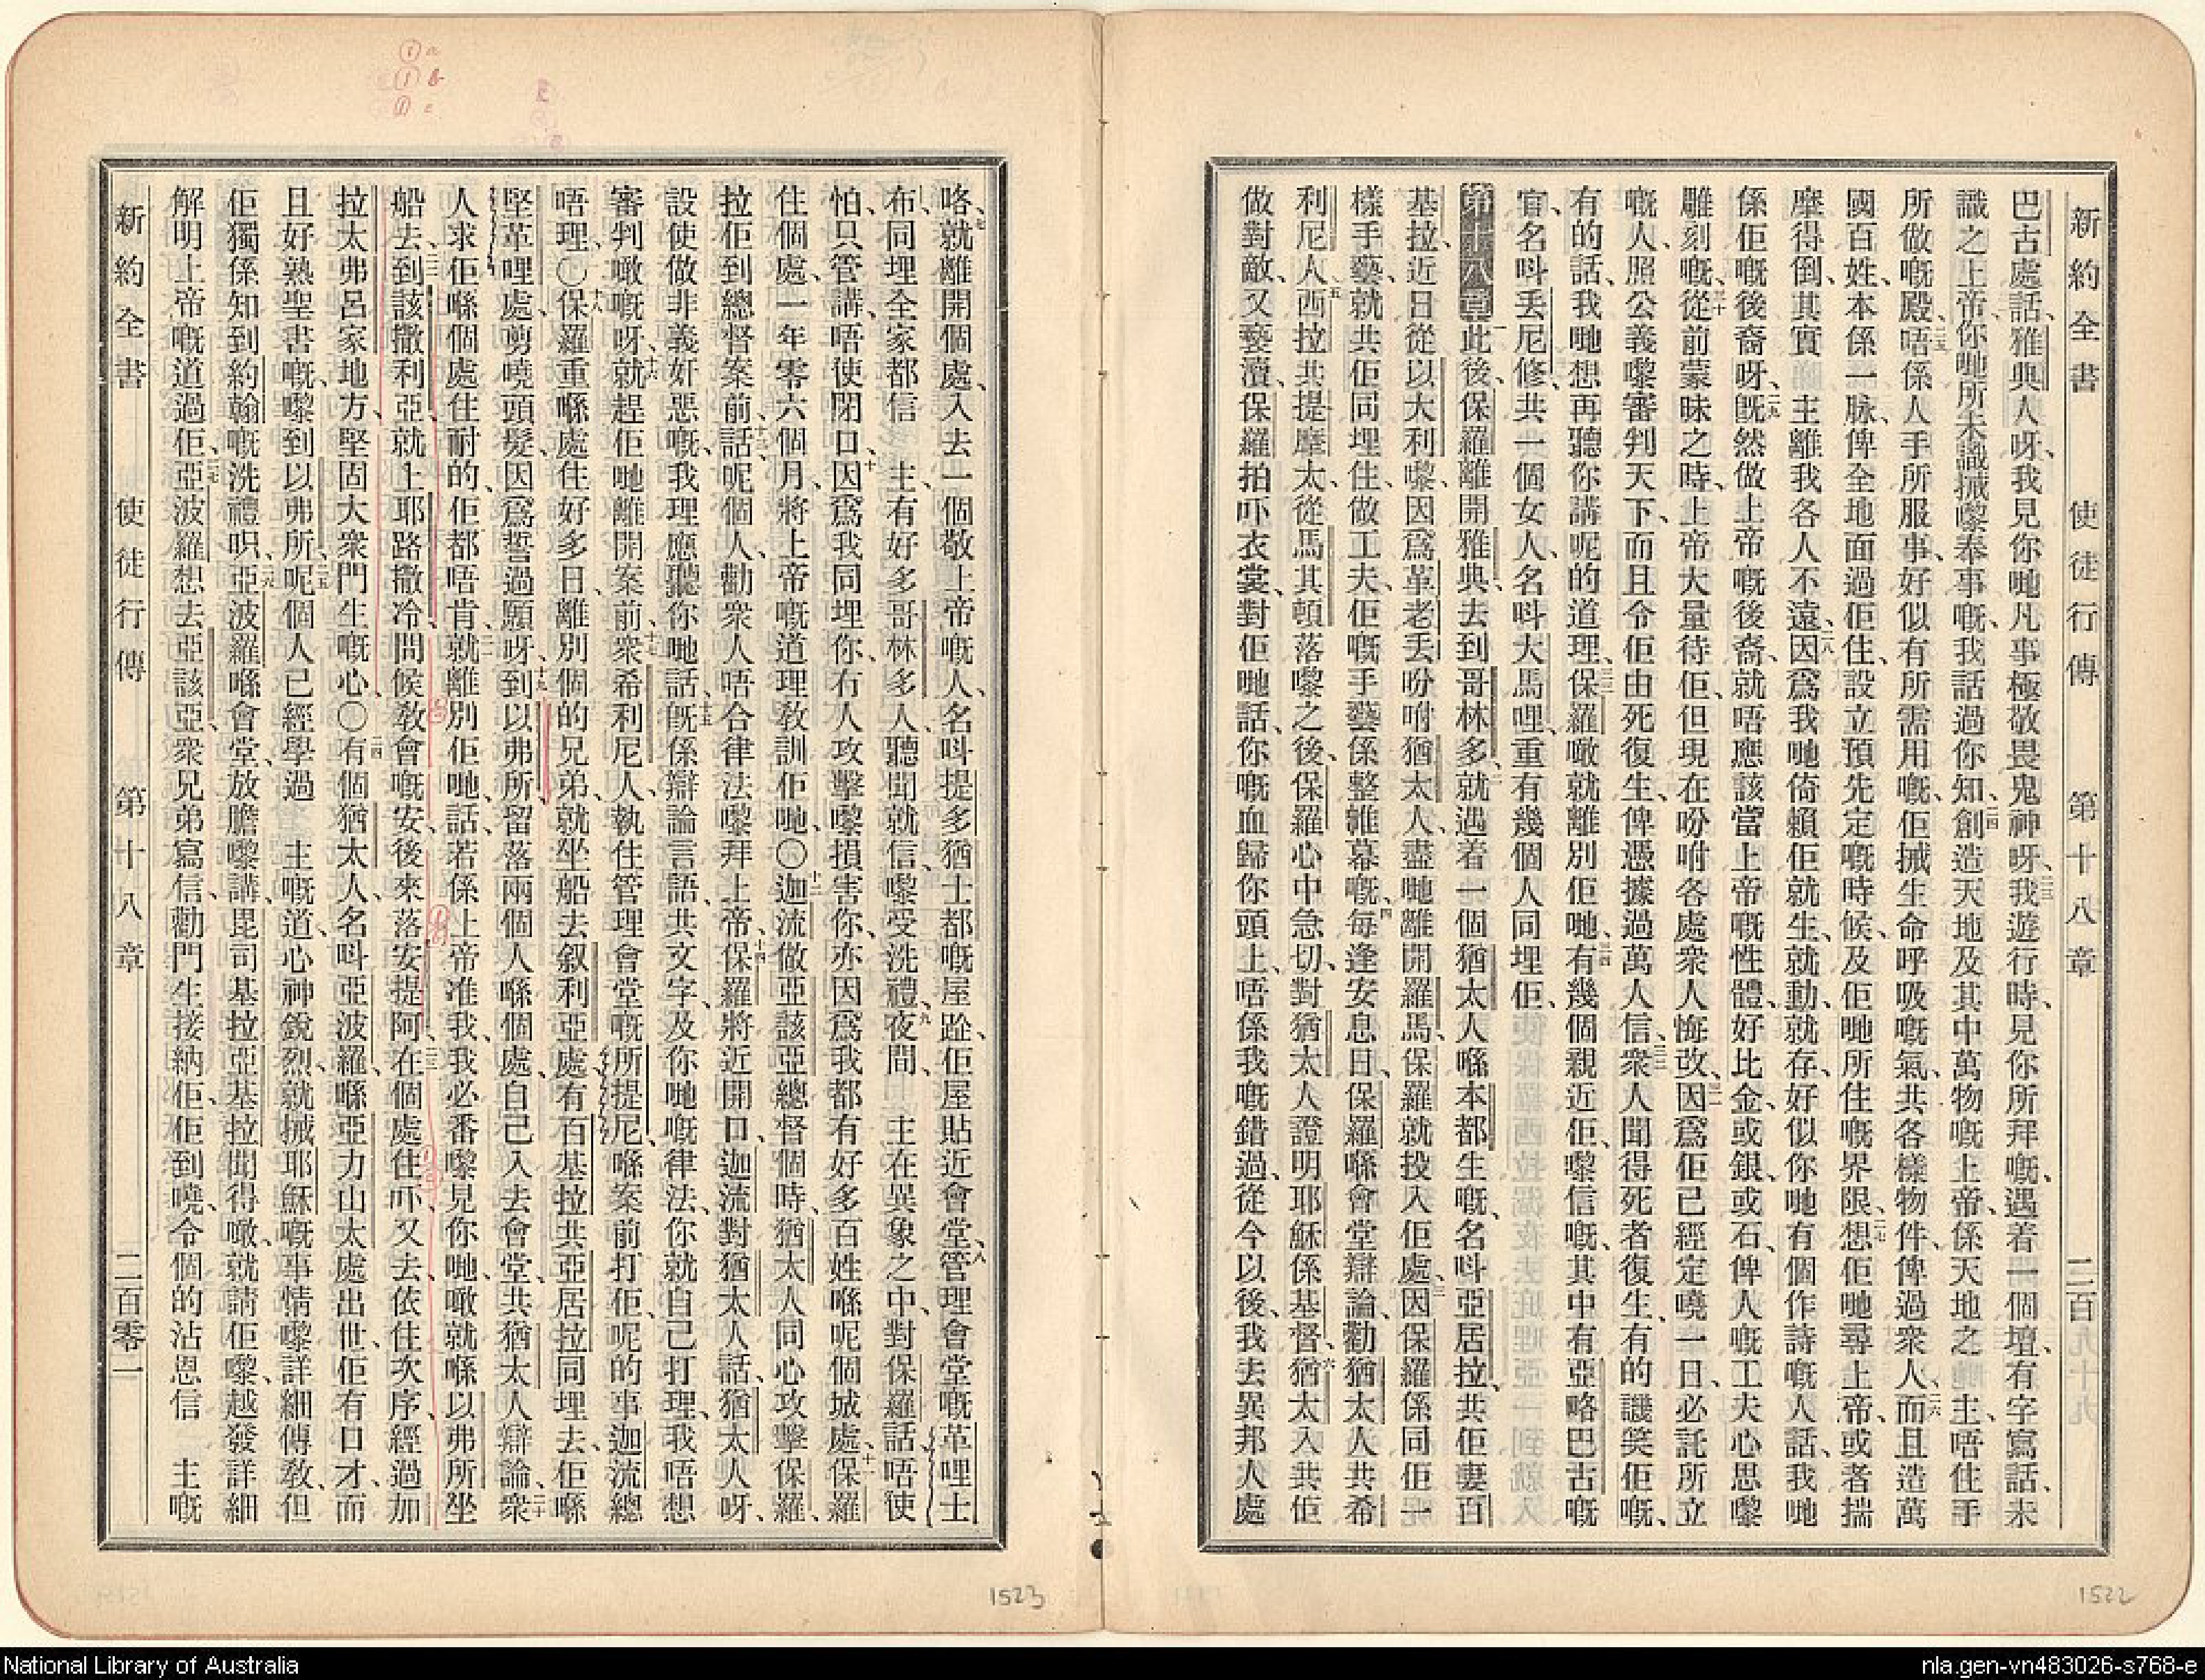 新約全書 使徒行傳 第十八章 二百
巴古處話、雅典人呀、我見你哋凡事極敬畏鬼神呀、二三我遊行時、見你所拜嘅、遇着一個壇、有字寫話、未
識之上帝、你哋所未識㨢嚟奉事嘅、我話過你知、二四創造天地及其中萬物嘅上帝、係天地之 主、唔住手
所做嘅殿、二五唔係人手所服事、好似有所需用嘅、佢㨢生命呼吸嘅氣、共各樣物件、俾過衆人、二六而且造萬
國百姓、本係一脉、俾全地面過佢住、設立預先定嘅時候、及佢哋所住嘅界限、二七想佢哋尋上帝、或者揣
摩得倒、其實 主離我各人不遠、二八因爲我哋倚賴佢就生、就動、就存、好似你哋有個作詩嘅人話、我哋
係佢嘅後裔呀、二九旣然做上帝嘅後裔、就唔應該當上帝嘅性體、好比金、或銀、或石、俾人嘅工夫心思嚟
雕刻嘅、三十從前蒙昧之時、上帝大量待佢、但現在吩咐各處衆人悔改、三一因爲佢已經定嘵一日、必託所立
嘅人、照公義嚟審判天下、而且令佢由死復生、俾憑據過萬人信、三二衆人聞得死者復生、有的譏笑佢嘅、
有的話、我哋想再聽你講呢的道理、三三保羅噉就離別佢哋、三四有幾個親近佢、嚟信嘅、其中有亞略巴古嘅
官、名呌丟尼修、共一個女人、名呌大馬哩、重有幾個人同埋佢、
第十八章 一此後、保羅離開雅典、去到哥林多、二就遇着一個猶太人喺本都生嘅、名呌亞居拉、共佢妻百
基拉、近日從以大利嚟、因爲革老丟吩咐猶太人、盡哋離開羅馬、保羅就投入佢處、三因保羅係同佢一
樣手藝、就共佢同埋住、做工夫、佢嘅手藝係整帷幕嘅、四每逢安息日、保羅喺會堂辯論、勸猶太人共希
利尼人、五西拉共提摩太、從馬其頓落嚟之後、保羅心中急切、對猶太人證明耶穌係基督、六猶太人共佢
做對敵、又褻瀆、保羅拍吓衣裳、對佢哋話、你嘅血歸你頭上、唔係我嘅錯過、從今以後、我去異邦人處
咯、七就離開個處、入去一個敬上帝嘅人、名呌提多猶士都嘅屋趾、佢屋貼近會堂、八管理會堂嘅革哩士
布、同埋全家都信 主、有好多哥林多人、聽聞就信、嚟受洗禮、九夜間 主在異象之中、對保羅話、唔使
怕、只管講、唔使閉口、十因爲我同埋你、冇人攻擊嚟損害你、亦因爲我都有好多百姓喺呢個城處、十一保羅
住個處、一年零六個月、將上帝嘅道理教訓佢哋、〇十二迦流做亞該亞總督個時、猶太人同心攻擊保羅、
拉佢到總督案前、十三話、呢個人、勸衆人唔合律法嚟拜上帝、十四保羅將近開口、迦流對猶太人話、猶太人呀、
設使做非義奸惡嘅、我理應聽你哋話、十五旣係辯論言語、共文字、及你哋嘅律法、你就自己打理、我唔想
審判噉嘅呀、十六就趕佢哋離開案前、十七衆希利尼人、執住管理會堂嘅所提尼、喺案前打佢、呢的事、迦流總
唔理、〇十八保羅重喺處住好多日、離別個的兄弟、就坐船去叙利亞處、有百基拉共亞居拉同埋去、佢喺
堅革哩處、剪嘵頭髮、因爲誓過願呀、十九到以弗所、留落兩個人喺個處、自己入去會堂、共猶太人辯論、二十衆
人求佢喺個處住耐的、佢都唔肯、二一就離別佢哋、話、若係上帝准我、我必番嚟見你哋、噉就喺以弗所坐
船去、二二到該撒利亞、就上耶路撒冷、問候教會嘅安、後來落安提阿、二三在個處住吓、又去、依住次序、經過加
拉太弗呂家地方、堅固大衆門生嘅心、〇二四有個猶太人、名呌亞波羅、喺亞力山太處出世、佢有口才、而
且好熟聖書嘅、嚟到以弗所、二五呢個人已經學過 主嘅道、心神銳烈、就㨢耶穌嘅事情、嚟詳細傳教、但
佢獨係知到約翰嘅洗禮呮、二六亞波羅喺會堂、放膽嚟講、百基拉亞居拉聞得噉、就請佢嚟、越發詳細
解明上帝嘅道過佢、二七亞波羅想去亞該亞、衆兄弟寫信、勸門生接納佢、佢到嘵、令個的沾恩信 主嘅
新約全書 使徒行傳 第十八章 二百零一
1523
1522
National Library of Australia
nla.gen-vn483026-s768-e